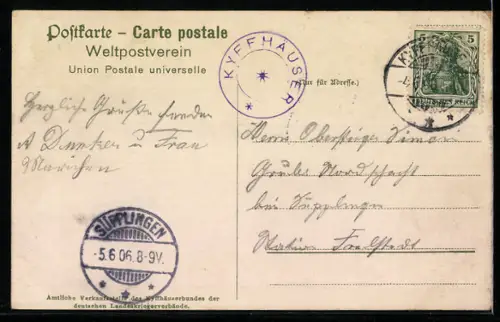 Postkarte – Carte postale
Weltpostverein
Union Postale universelle
KYFFHÄUSER
(Nur für Adresse.)
5 5
DEUTSCHES REICH
Herzliche Grüße senden
A Dunker u Frau
Mariechen
Herrn Obersteiger Simon
Grube Nordschacht
bei Süpplingen
Station Frellstedt
SÜPPLINGEN
5.6.06.8-9V.
Amtliche Verkaufsstelle des Kyffhäuserbundes der
deutschen Landeskriegerverbände.